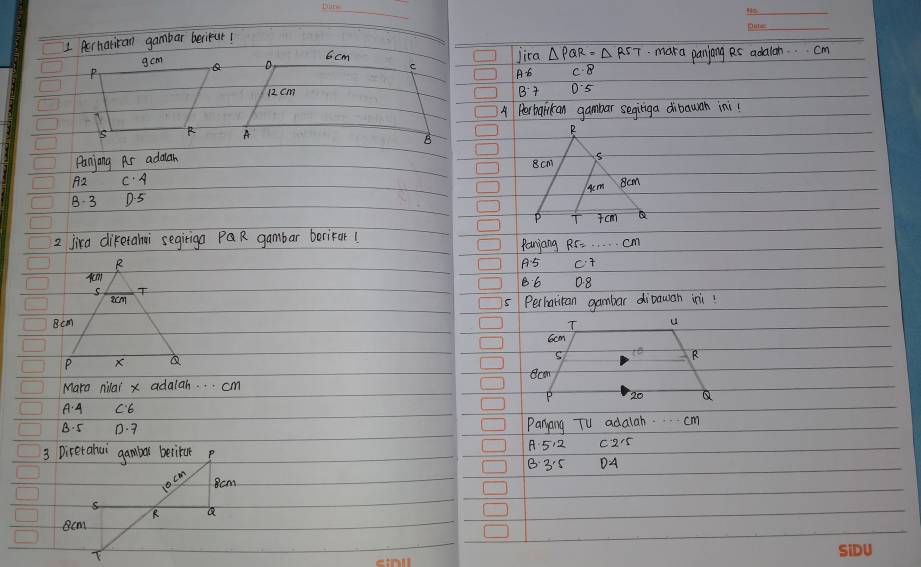 Date:
1 Perhatikan gambar berikut!
9cm
6cm
P Q D C
12 cm
S R A B
Panjang RS adalah
A2 C.4
B.3 D.5
2 jika diketahui segitiga PQR gambar berikut!
R
4cm
S T
2cm
8cm
P x Q
Maka nilai x adalah ... cm
A.4 C.6
B.5 D.7
3 Diketahui gambar berikut
P
10 cm
8cm
S R Q
8cm
T
SiDU
No.
Date:
jika △ PQR = △ RST. maka panjang RS adalah ... cm
A.6 C.8
B.7 D.5
4 Perhatikan gambar segitiga dibawah ini!
R
8cm
S
4cm 8cm
P T 7cm Q
Panjang RS= ..... cm
A.5 C.7
B.6 D.8
5 Perhatikan gambar dibawah ini!
T U
6cm
S 18 R
8cm
P 20 Q
Panjang TU adalah .... cm
A.5,2 C 2,5
B.3,5 D4
SiDU